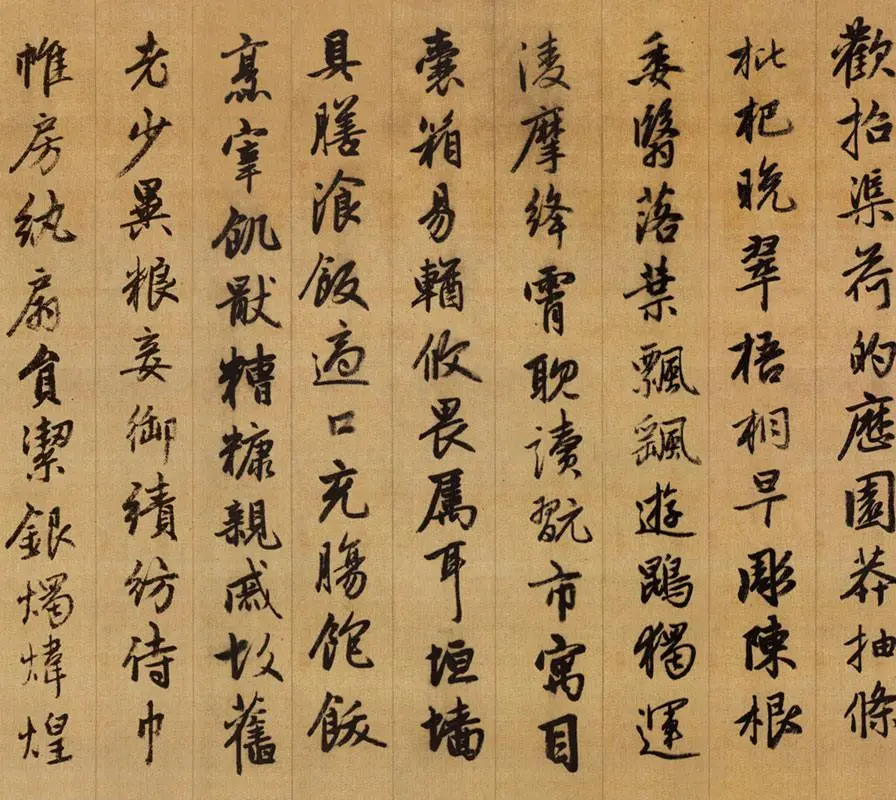 歡招渠荷的歷園莽抽條
枇杷晚翠梧桐早彫陳根
委翳落葉飄颻遊鵾獨運
淩摩絳霄耽讀翫市寓目
囊箱易輶攸畏屬耳垣墻
具膳湌飯適口充腸飽飫
烹宰飢猒糟糠親戚故舊
老少異粮妾御績紡侍巾
帷房紈扇員潔銀燭煒煌